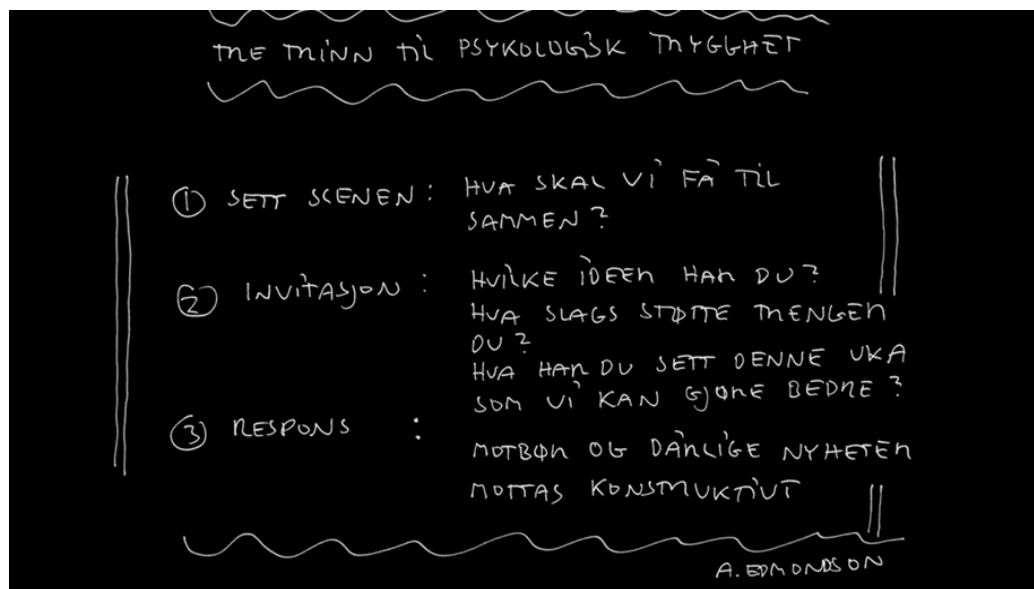 TRE TRINN TIL PSYKOLOGISK TRYGGHET
① SETT SCENEN : HVA SKAL VI FÅ TIL
SAMMEN ?
② INVITASJON : HVILKE IDEER HAR DU ?
HVA SLAGS STØTTE TRENGER
DU ?
HVA HAR DU SETT DENNE UKA
SOM VI KAN GJØRE BEDRE ?
③ RESPONS :
MOTBØR OG DÅRLIGE NYHETER
MOTTAS KONSTRUKTIVT
A. EDMONDSON